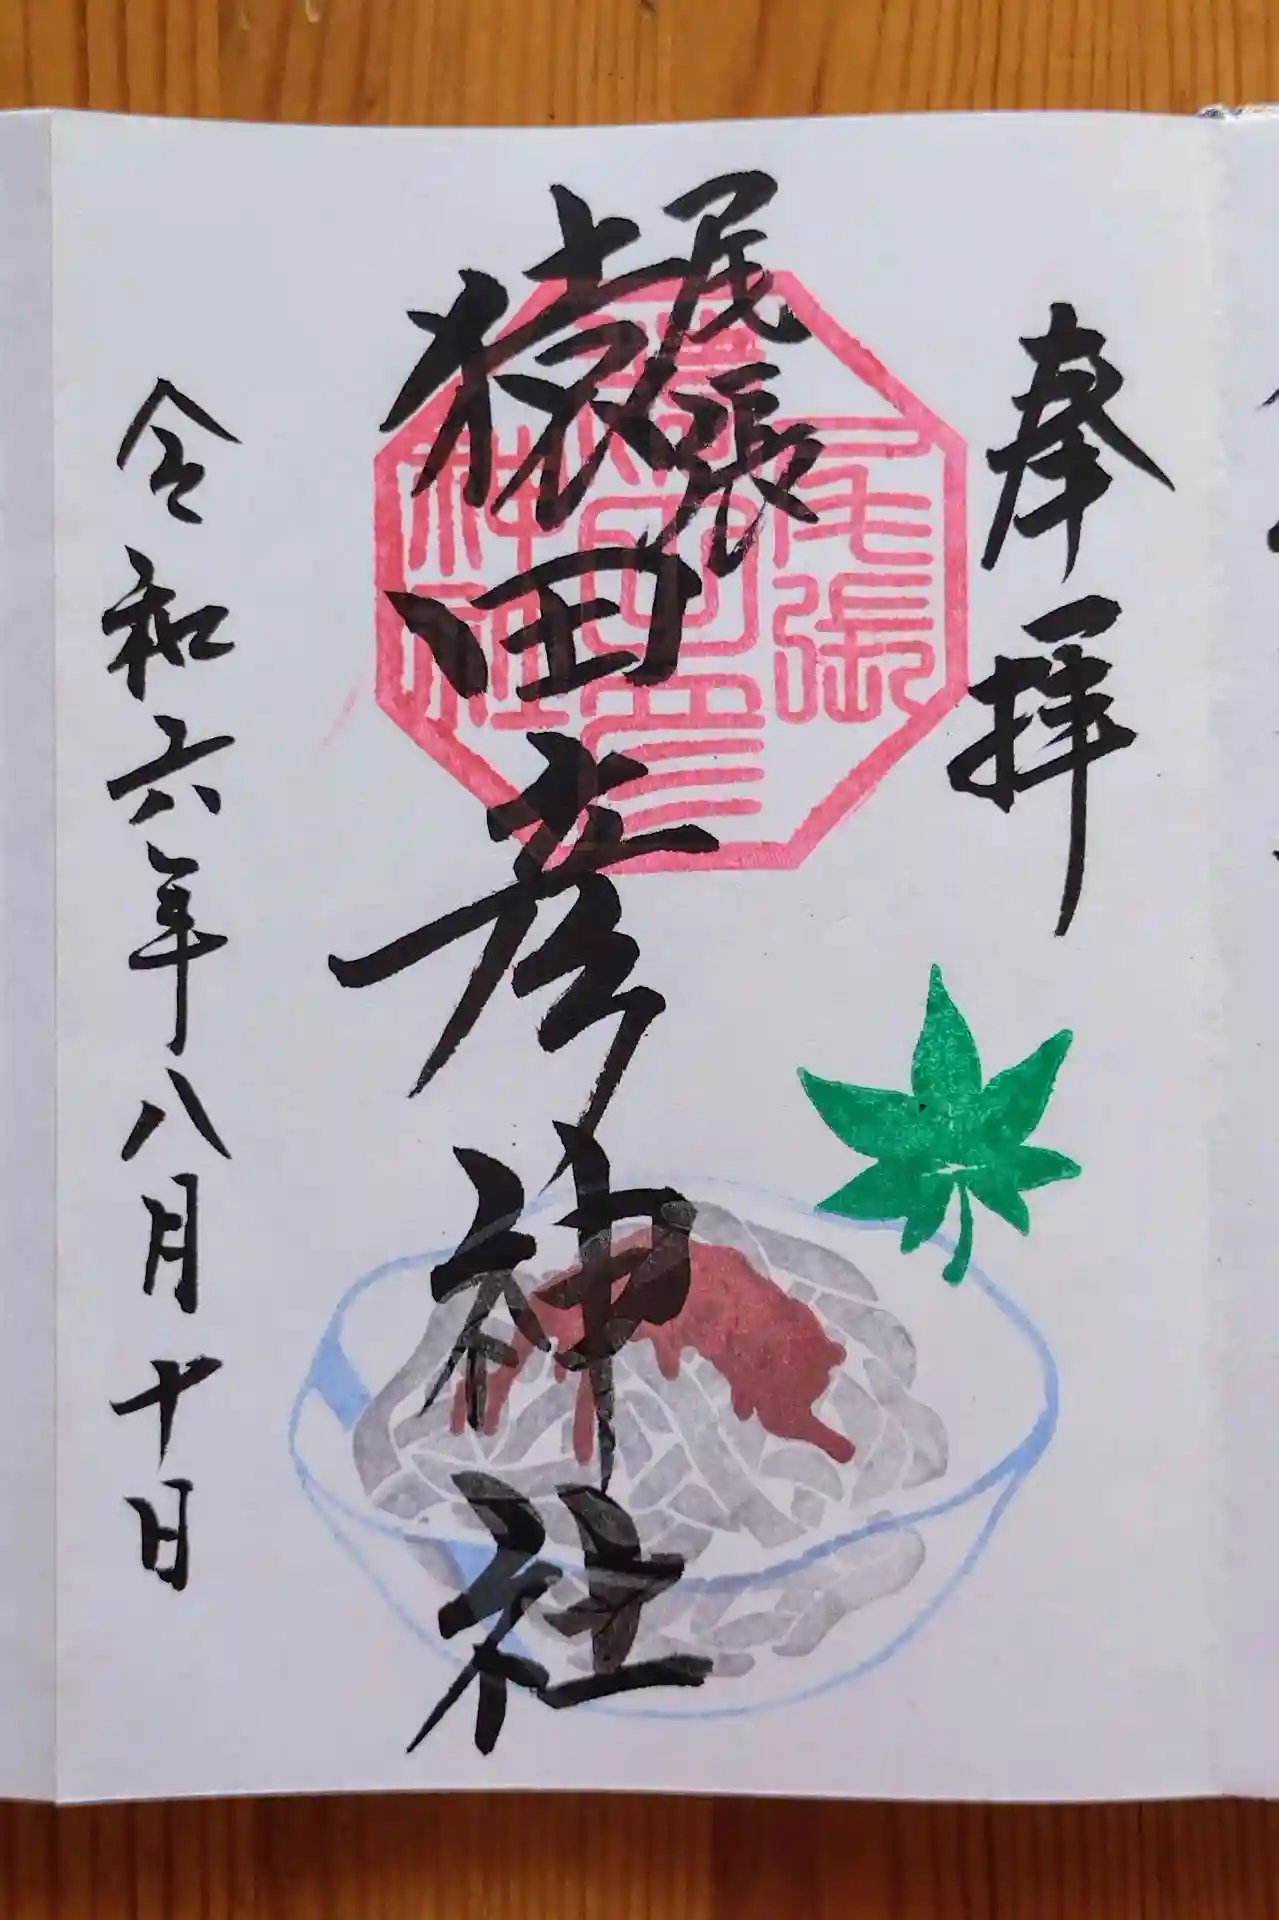 奉拝
尾張
猿田彦神社
令和六年八月十日
尾張
猿田彦
神社